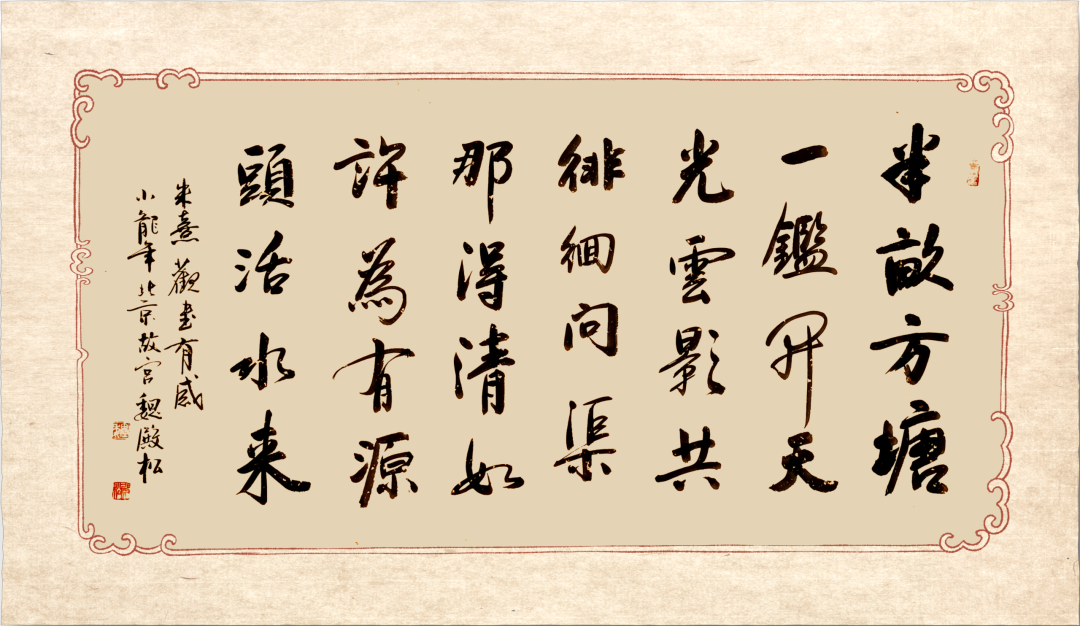 半畝方塘
一鑑開天
光雲影共
徘徊問渠
那得清如
許為有源
頭活水来
朱熹觀書有感
小龍年北京故宫魏殿松